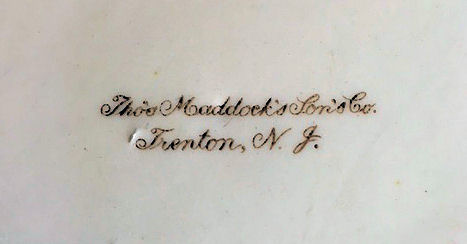 Tho's Maddock's Son's Co.
Trenton, N. J.